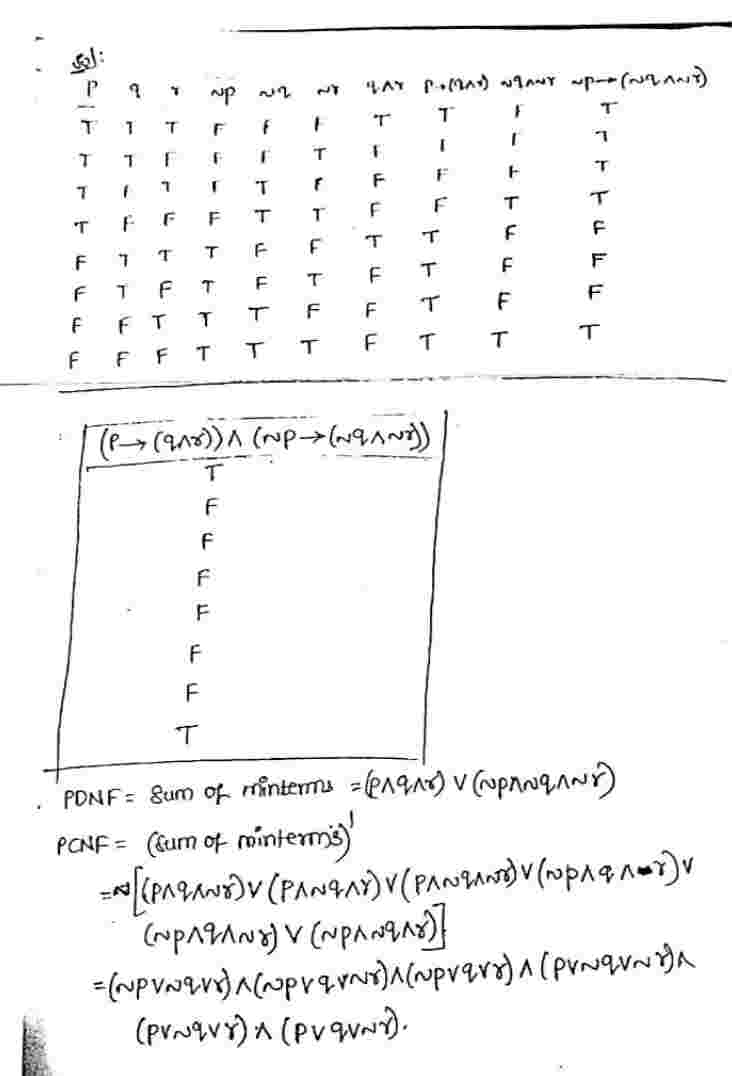 Sol:
P q r ~p ~q ~r q∧r P→(q∧r) ~q∧~r ~p→(~q∧~r)
T T T F F F T T F T
T T F F F T F F F T
T F T F T F F F F T
T F F F T T F F T T
F T T T F F T T F F
F T F T F T F T F F
F F T T T F F T F F
F F F T T T F T T T
(P→(q∧r))∧(~p→(~q∧~r))
T
F
F
F
F
F
F
T
PDNF = Sum of minterms = (p∧q∧r) ∨ (~p∧~q∧~r)
PCNF = (sum of minterms)'
= ~[(p∧q∧~r)∨(p∧~q∧r)∨(p∧~q∧~r)∨(~p∧q∧r)∨
(~p∧q∧~r)∨(~p∧~q∧r)]
= (~p∨~q∨r)∧(~p∨q∨~r)∧(~p∨q∨r)∧(p∨~q∨~r)∧
(p∨~q∨r)∧(p∨q∨~r).